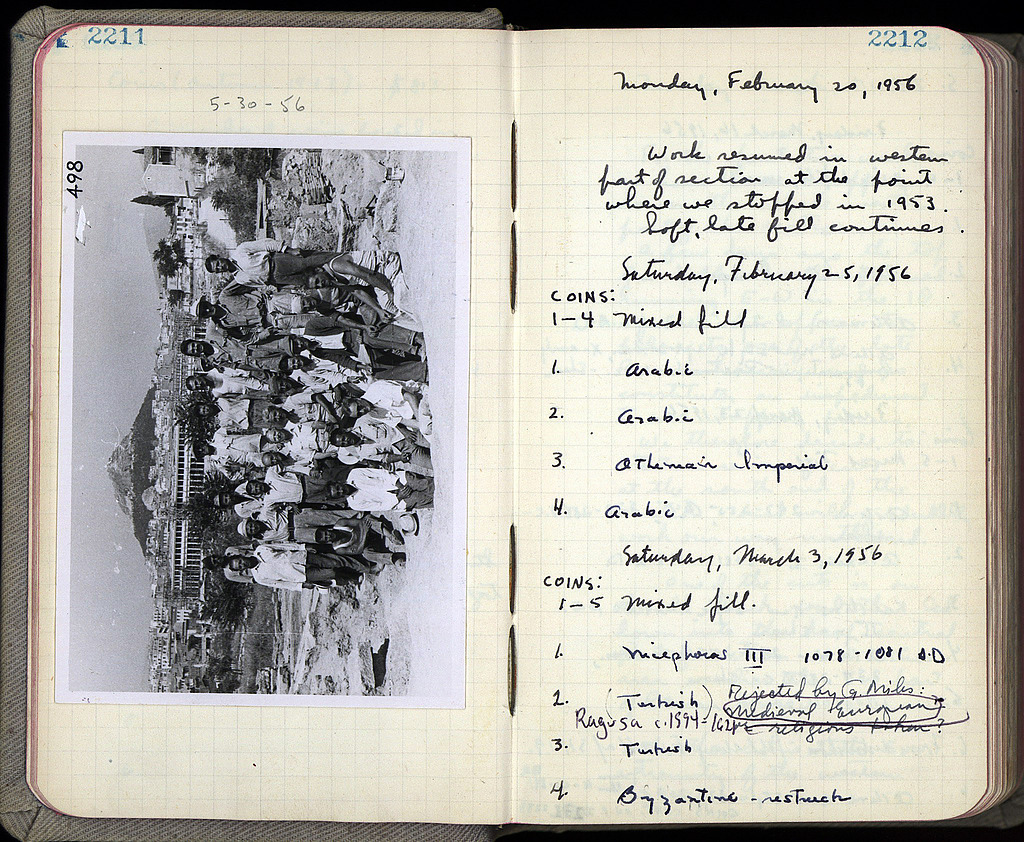 2211
5-30-56
498
2212
Monday, February 20, 1956
Work resumed in western
part of section at the point
where we stopped in 1953.
Soft, late fill continues.
Saturday, February 25, 1956
COINS:
1-4 Mixed fill
1. Arabic
2. Arabic
3. Othoman Imperial
4. Arabic
Saturday, March 3, 1956
COINS:
1-5 Mixed fill.
1. Nicephorus III 1078-1081 A.D
2. (Turkish) Rejected by G. Miles:
Medieval European
Ragusa c. religious token?
3. Turkish
4. Byzantine - restruck